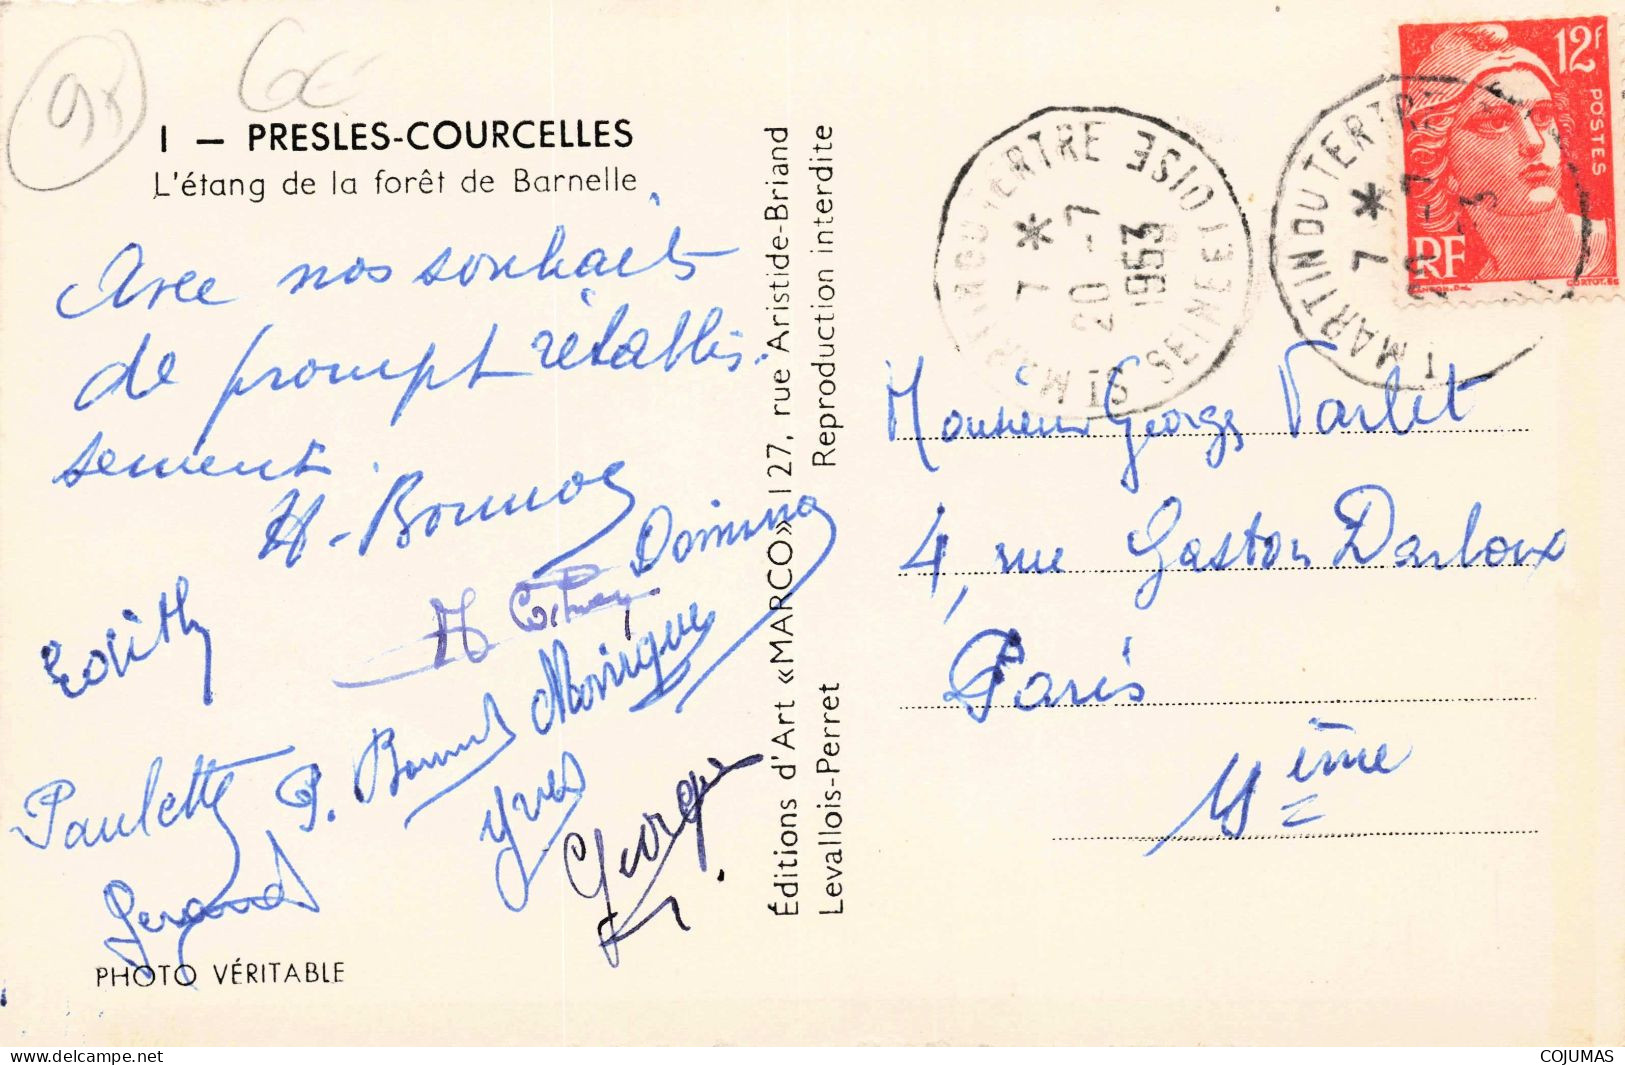 98
6€
1 — PRESLES-COURCELLES
L'étang de la forêt de Barnelle
Avec nos souhaits
de prompt rétablis-
sement.
H. Bonnos
Edith
Monique
Paulette
P.
Yves
Gerard
George
PHOTO VÉRITABLE
Éditions d'Art «MARCO» 127, rue Aristide-Briand
Levallois-Perret Reproduction interdite
ST MARTIN DU TERTRE
SEINE ET OISE
7 *
20 - 7
1953
ST MARTIN DU TERTRE
7 *
20 - 7
12F
POSTES
RF
GANDON.DEL
CORTOT.SC
Monsieur Georges Varlet
4, rue Gaston Darboux
Paris
18=ème
www.delcampe.net
COJUMAS